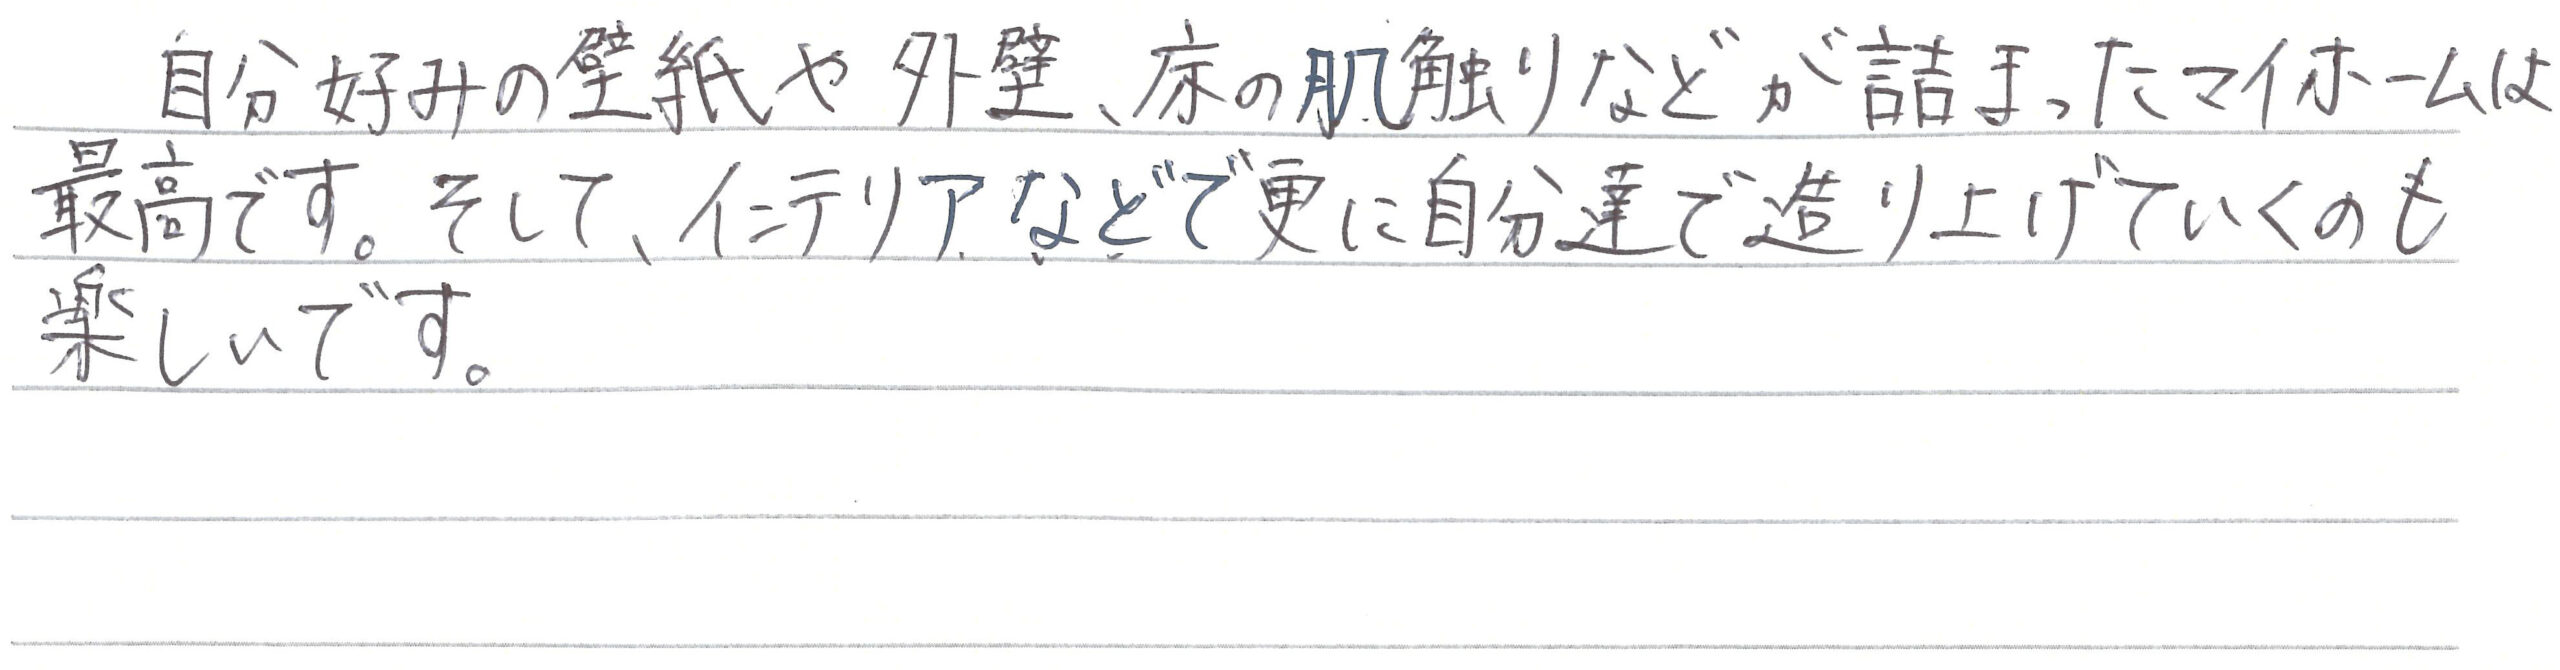 自分好みの壁紙や外壁、床の肌触りなどが詰まったマイホームは
最高です。そして、インテリアなどで更に自分達で造り上げていくのも
楽しいです。